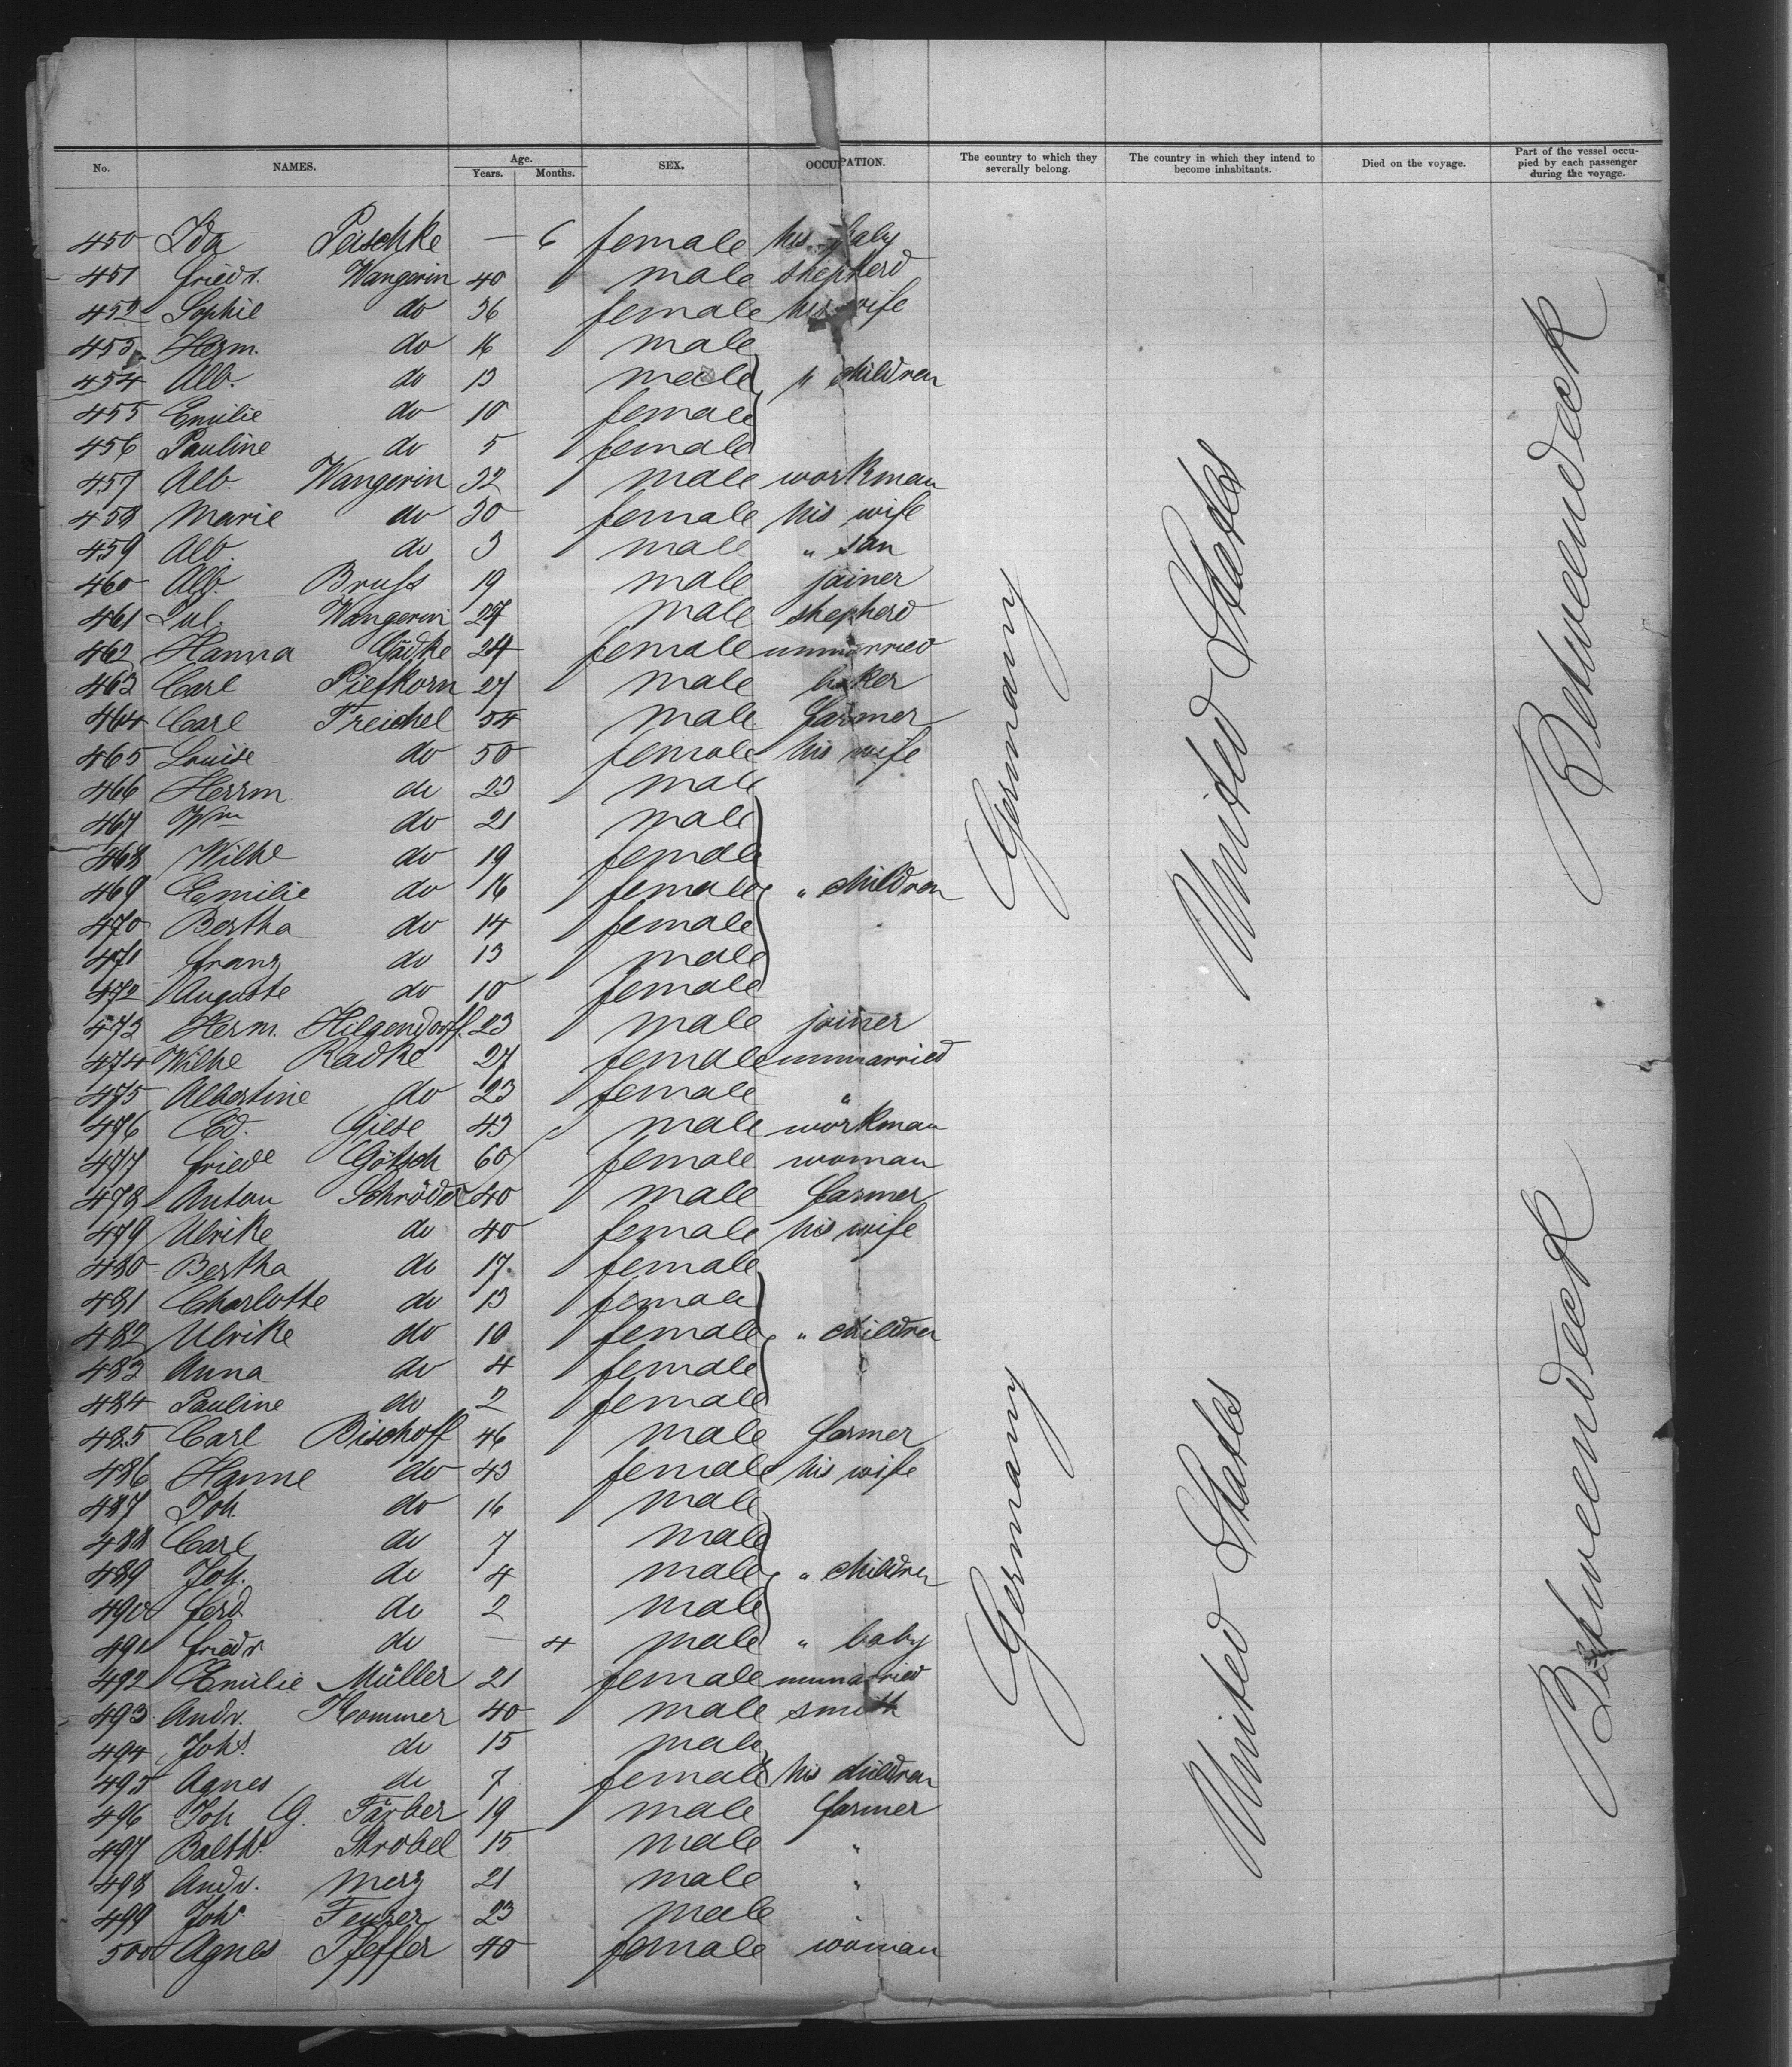 No. NAMES. Age. Years. Months. SEX. OCCUPATION. The country to which they severally belong. The country in which they intend to become inhabitants. Died on the voyage. Part of the vessel occupied by each passenger during the voyage.
450 Ida Peischke — 6 female his baby
451 Friedr. Wangerin 40 male shepherd
452 Sophie do 36 female his wife
453 Herm. do 16 male
454 Alb. do 13 male " children
455 Emilie do 10 female
456 Pauline do 5 female
457 Alb. Wangerin 32 male workman
458 Marie do 30 female his wife
459 Alb. do 3 male " son
460 Alb. Bruss 19 male joiner
461 Jul. Wangerin 27 male shepherd
462 Hanna Gädke 24 female unmarried
463 Carl Piefkorn 27 male baker
464 Carl Treichel 54 male farmer
465 Louise do 50 female his wife
466 Herrm. do 23 male
467 Wm do 21 male
468 Wilhe do 19 female
469 Emilie do 16 female " children
470 Bertha do 14 female
471 Franz do 13 male
472 Auguste do 10 female
473 Herm. Hilgendorff 23 male joiner
474 Wilhe Radke 27 female unmarried
475 Albertine do 23 female "
476 Ed. Giese 43 male workman
477 Friede Götsch 60 female woman
478 Anton Schröder 40 male farmer
479 Ulrike do 40 female his wife
480 Bertha do 17 female
481 Charlotte do 13 female
482 Ulrike do 10 female " children
483 Anna do 4 female
484 Pauline do 2 female
485 Carl Bischoff 46 male farmer
486 Hanne do 43 female his wife
487 Joh. do 16 male
488 Carl do 7 male
489 Joh. do 4 male " children
490 Ferd. do 2 male
491 Friedr. do — 4 male " baby
492 Emilie Müller 21 female unmarried
493 Andr. Kommer 40 male smith
494 Johs. do 15 male
495 Agnes do 7 female his children
496 Joh G. Färber 19 male farmer
497 Balth. Strobel 15 male "
498 Andr. Merz 21 male "
499 Joh. Feuser 23 male "
500 Agnes Pfeffer 40 female woman
Germany
Germany
United States
United States
Betweendeck
Betweendeck